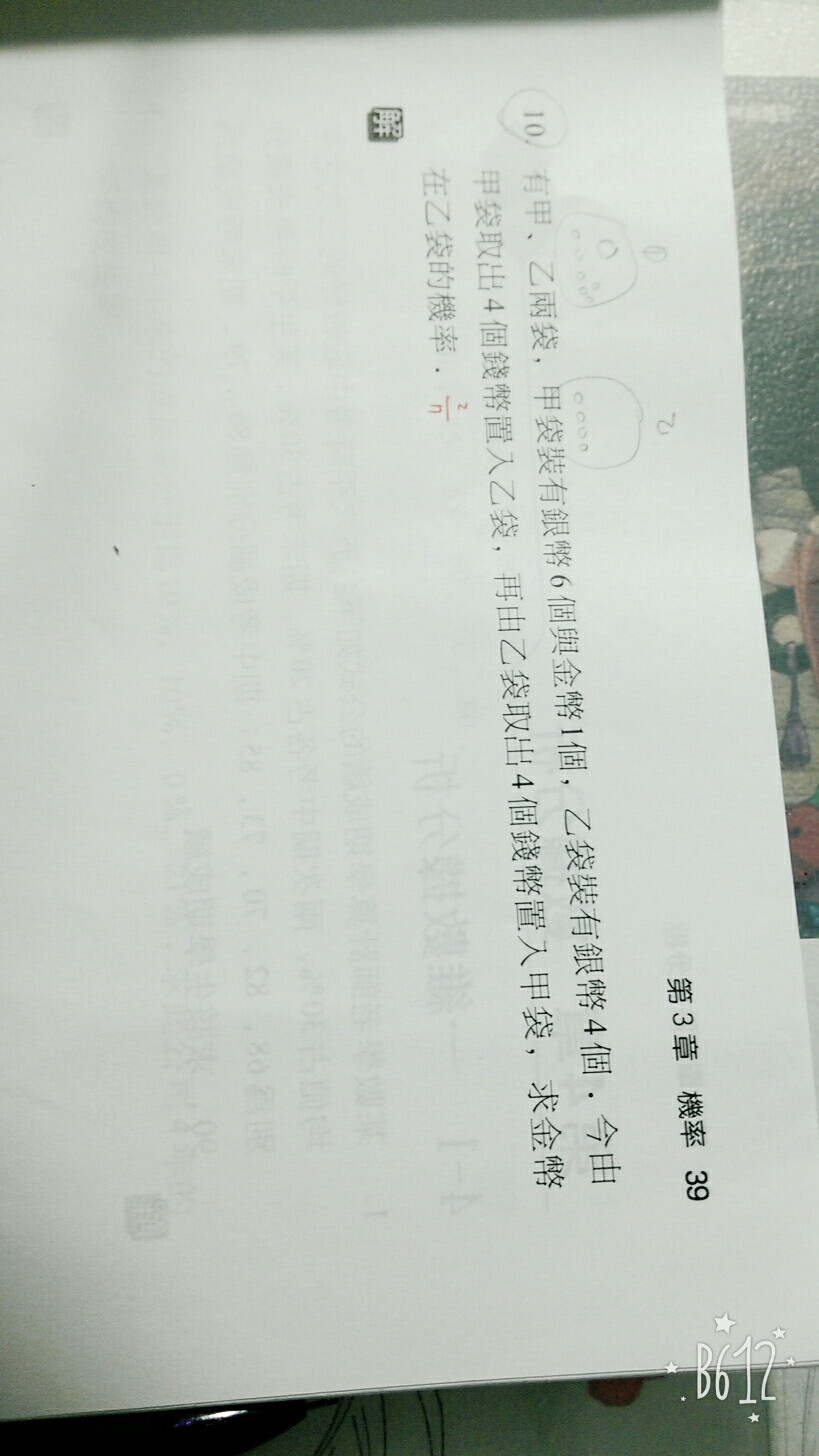 第3章 機率 39
10. 有甲、乙兩袋，甲袋裝有銀幣6個與金幣1個，乙袋裝有銀幣4個．今由
甲袋取出4個錢幣置入乙袋，再由乙袋取出4個錢幣置入甲袋，求金幣
在乙袋的機率．
解
B612